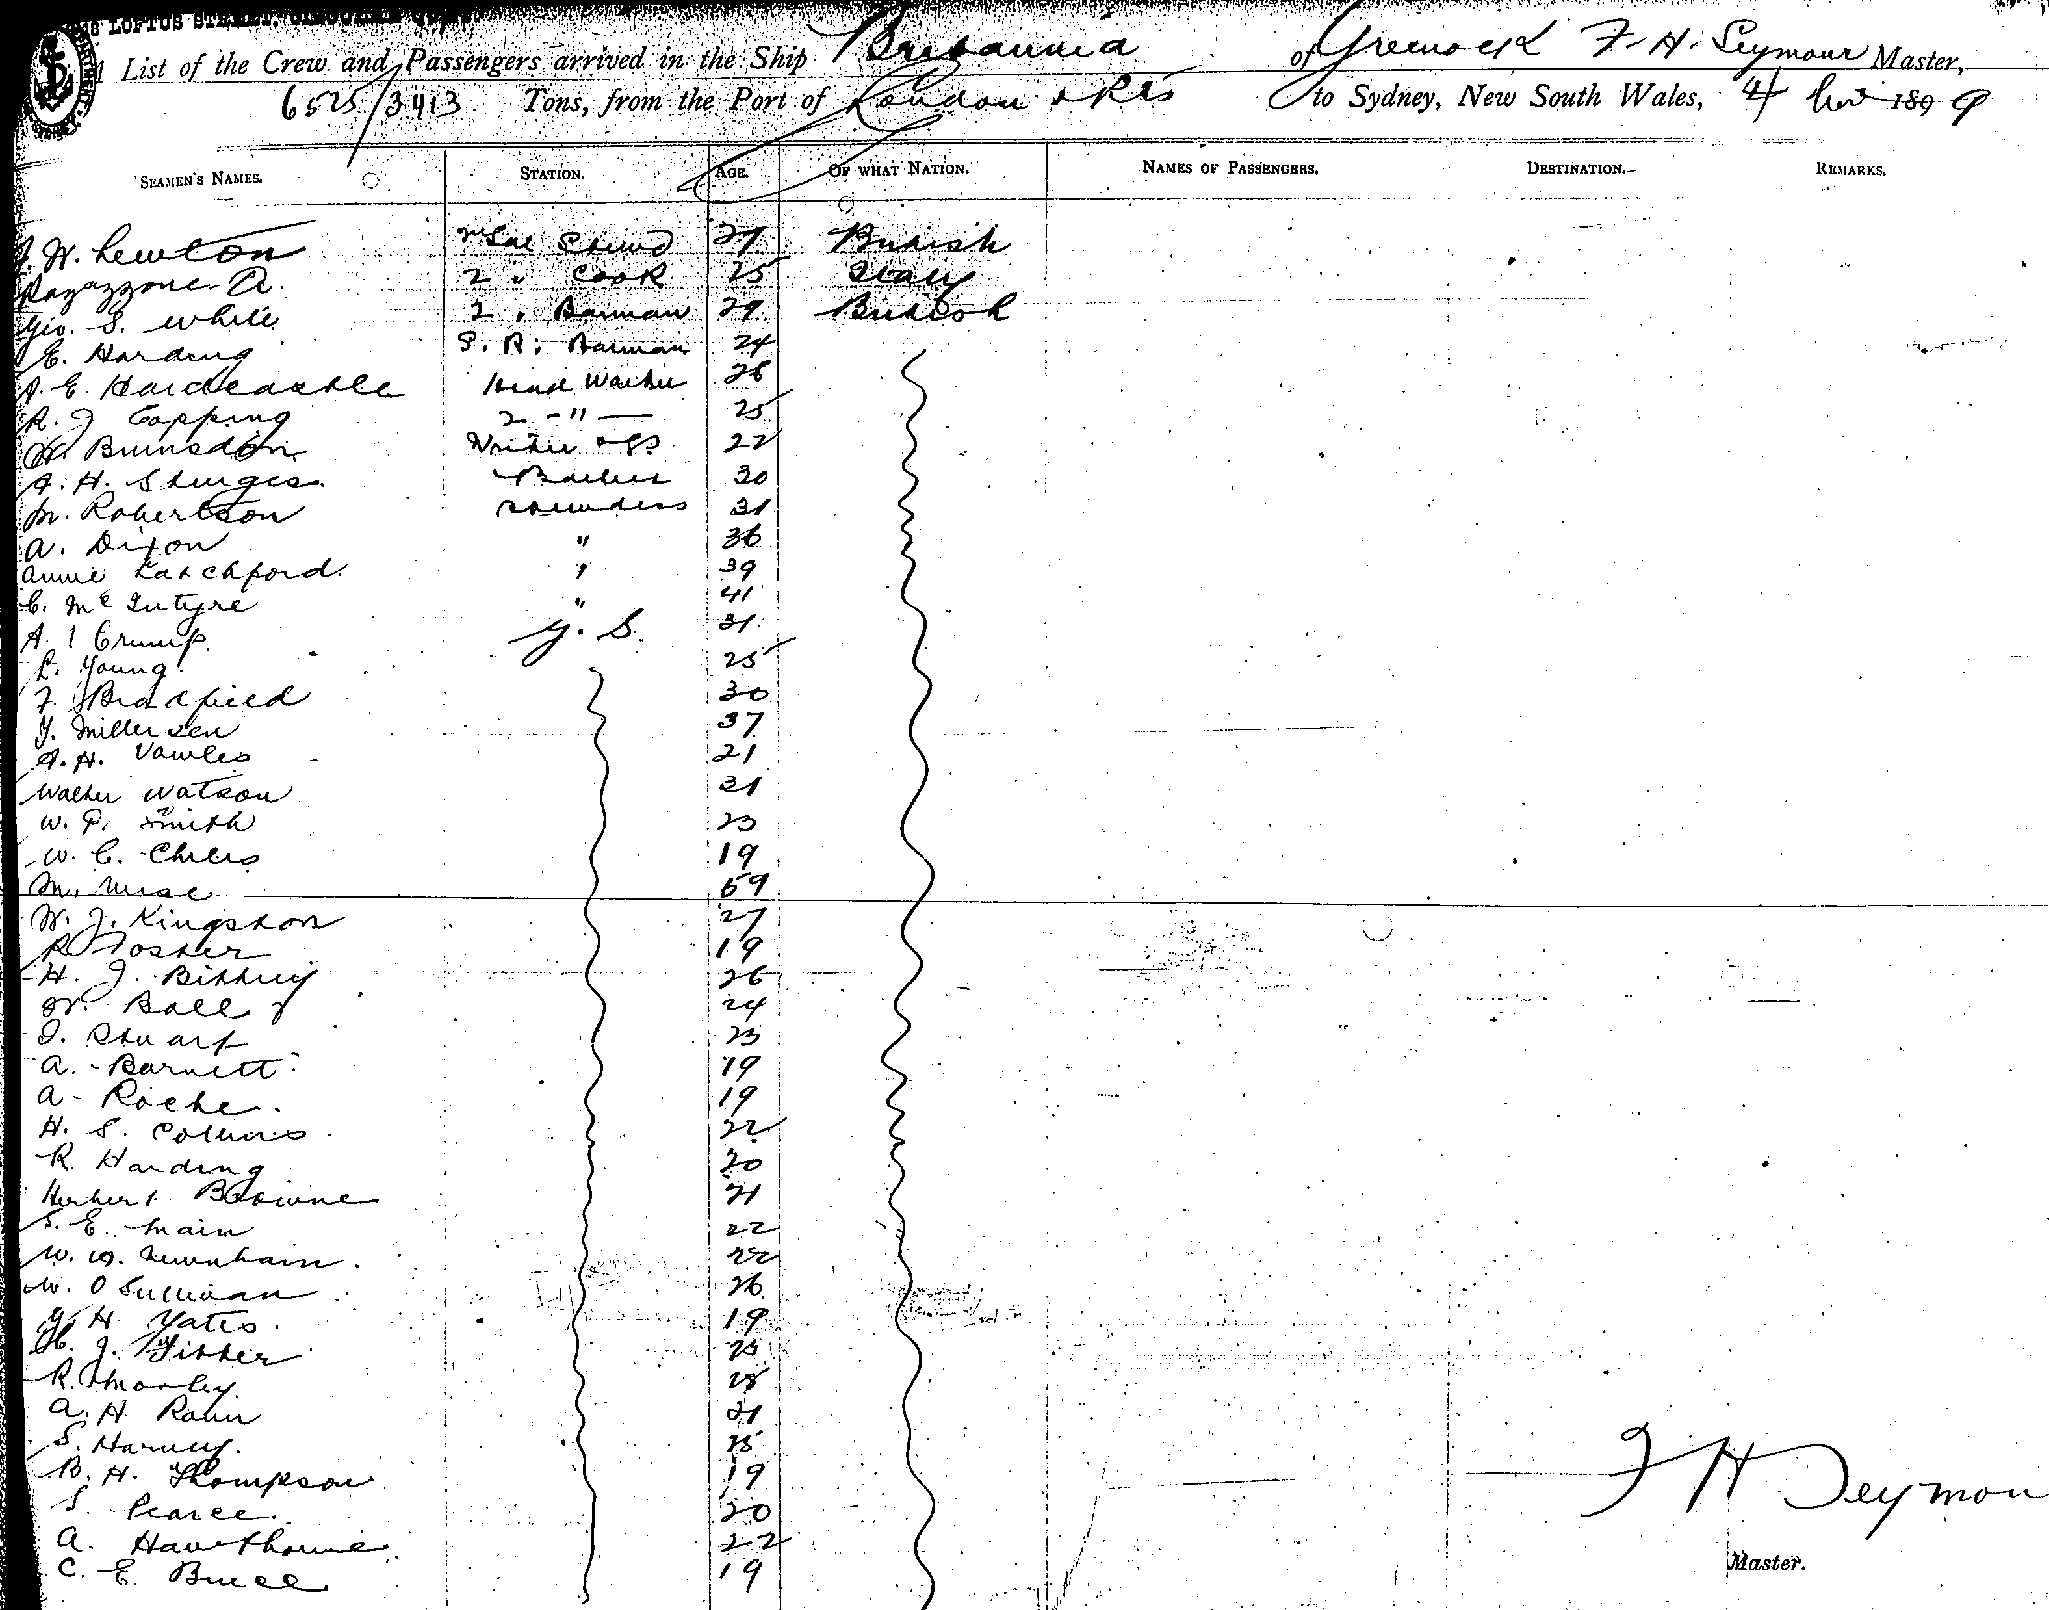 LOFTUS STREET, CIRCULAR
List of the Crew and Passengers arrived in the Ship Britannia of Greenock F. H. Seymour Master,
6525/3413 Tons, from the Port of London & Pts to Sydney, New South Wales, 4 Nov 1899
SEAMEN'S NAMES. STATION. AGE. OF WHAT NATION. NAMES OF PASSENGERS. DESTINATION. REMARKS.
J. W. Lewton 27 British
Ragazzone A. 2 " Cook 25 Italy
Geo. S. White 2 " Barman 29 British
E. Harding S. R. Barman 24
A. E. Hardcastle Head Waiter 26
R. J. Topping 2 - " - 25
Brunsdon Writer 22
A. H. Sturgess Barber 30
M. Robertson Stewardess 31
A. Dixon " 36
Annie Latchford " 39
C. McIntyre " 41
A. Crump G. S. 31
L. Young 25
F. Bradfield 30
J. Millersen 37
A. H. Vowles 21
Walter Watson 31
W. P. Smith 23
W. C. Chiles 19
M. Wise 59
W. J. Kingston 27
R Foster 19
H. J. Bittery 26
W. Ball 24
J. Stuart 23
A. Barnett 19
A. Roche 19
H. S. Collins 22
R. Harding 20
Herbert Browne 21
S. E. Main 22
W. W. Newnham 22
W. O Sullivan 26
G. H. Yates 19
H. J. Fitter 25
R. Morley 25
A. H. Rann 21
S. Harvey 25
B. H. Thompson 19
S. Pearce 20
A. Hawthorne 22
C. E. Buell 19
F H Seymour
Master.